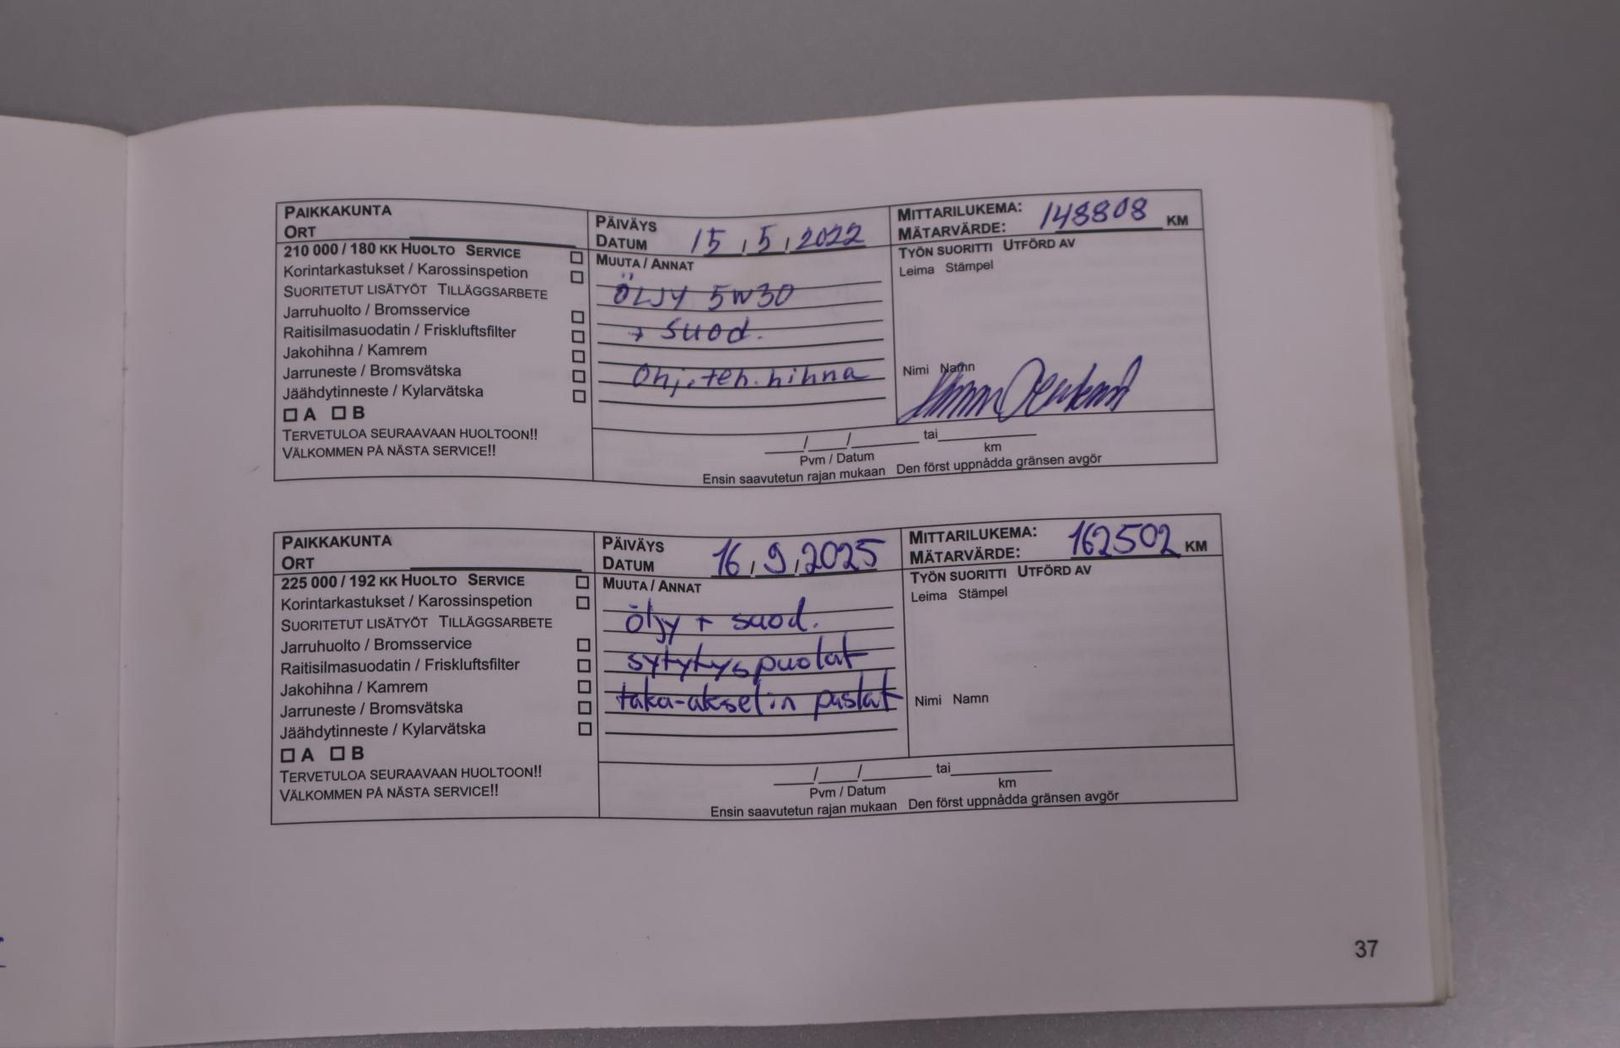 PAIKKAKUNTA
ORT
PÄIVÄYS
DATUM 15,5,2022
MITTARILUKEMA:
MÄTARVÄRDE: 148808 KM
210 000 / 180 KK HUOLTO SERVICE
Korintarkastukset / Karossinspetion
SUORITETUT LISÄTYÖT TILLÄGGSARBETE
Jarruhuolto / Bromsservice
Raitisilmasuodatin / Friskluftsfilter
Jakohihna / Kamrem
Jarruneste / Bromsvätska
Jäähdytinneste / Kylarvätska
A B
TERVETULOA SEURAAVAAN HUOLTOON!!
VÄLKOMMEN PÅ NÄSTA SERVICE!!
MUUTA / ANNAT
ÖLJY 5W30
+ Suod.
Ohj.teh.hihna
TYÖN SUORITTI UTFÖRD AV
Leima Stämpel
Nimi Namn
/ / tai
Pvm / Datum km
Ensin saavutetun rajan mukaan Den först uppnådda gränsen avgör
PAIKKAKUNTA
ORT
PÄIVÄYS
DATUM 16,9,2025
MITTARILUKEMA:
MÄTARVÄRDE: 162502 KM
225 000 / 192 KK HUOLTO SERVICE
Korintarkastukset / Karossinspetion
SUORITETUT LISÄTYÖT TILLÄGGSARBETE
Jarruhuolto / Bromsservice
Raitisilmasuodatin / Friskluftsfilter
Jakohihna / Kamrem
Jarruneste / Bromsvätska
Jäähdytinneste / Kylarvätska
A B
TERVETULOA SEURAAVAAN HUOLTOON!!
VÄLKOMMEN PÅ NÄSTA SERVICE!!
MUUTA / ANNAT
öljy + suod.
sytytyspuolat
taka-akselin puslat
TYÖN SUORITTI UTFÖRD AV
Leima Stämpel
Nimi Namn
/ / tai
Pvm / Datum km
Ensin saavutetun rajan mukaan Den först uppnådda gränsen avgör
37